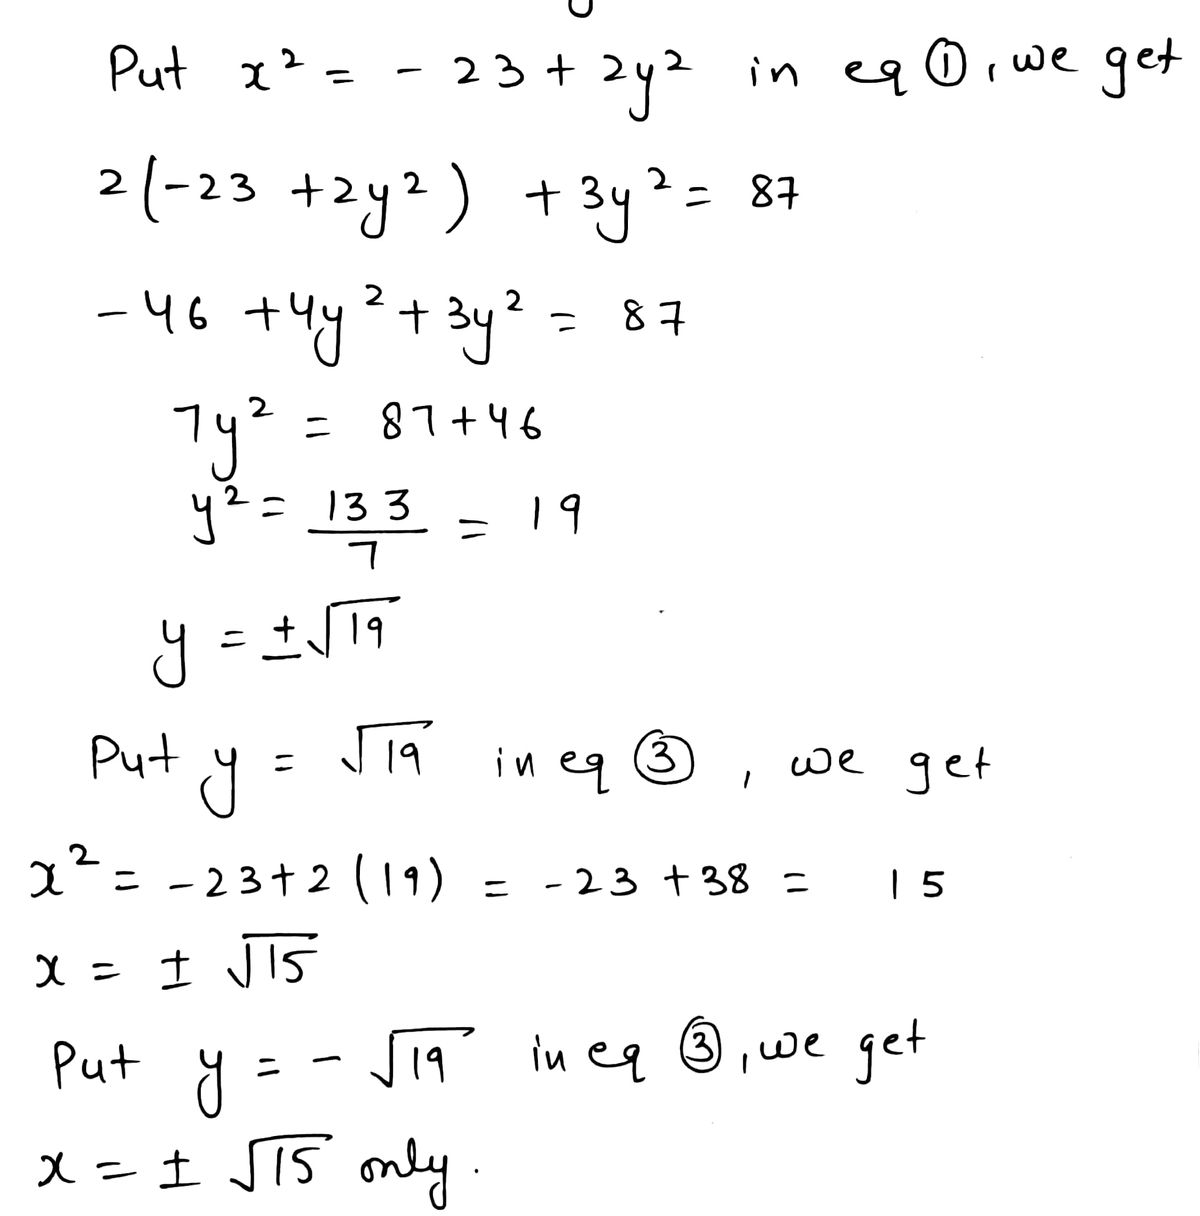 Put x² = - 23 + 2y² in eq ①, we get
2(-23 +2y²) + 3y² = 87
-46 +4y² + 3y² = 87
7y² = 87+46
y² = 133/7 = 19
y = ±√19
Put y = √19 in eq ③, we get
x² = -23+2(19) = -23 +38 = 15
x = ± √15
Put y = - √19 in eq ③, we get
x = ± √15 only.